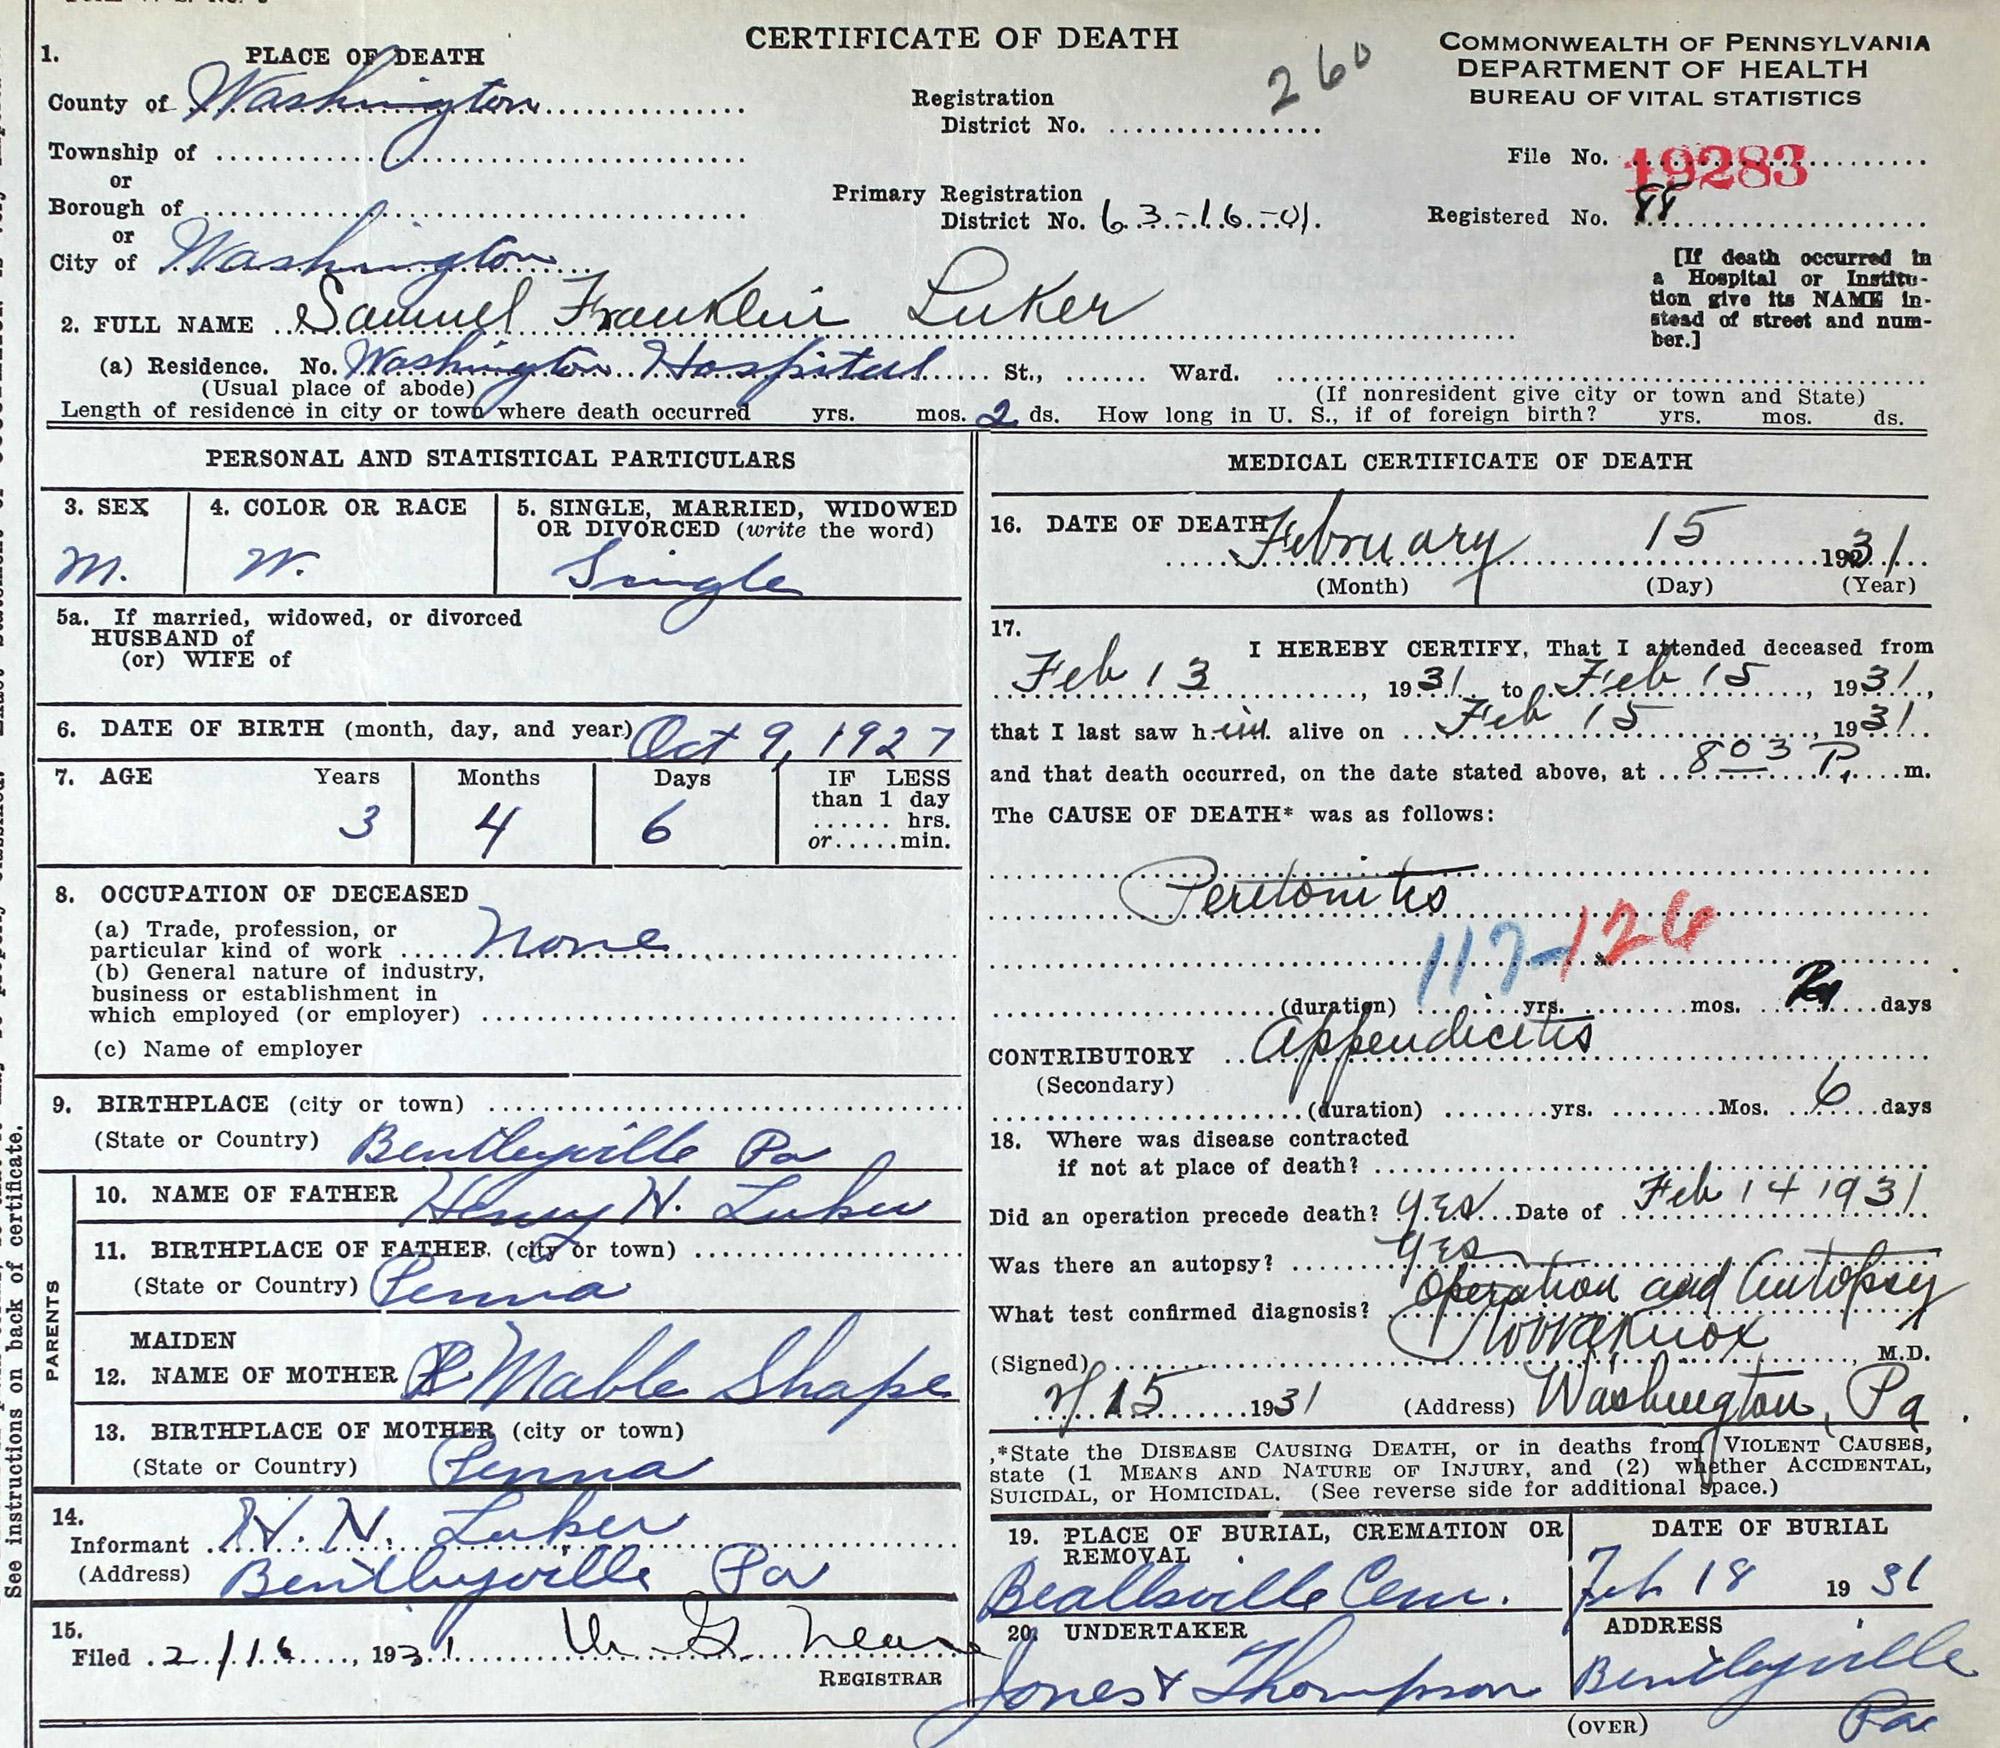 CERTIFICATE OF DEATH
COMMONWEALTH OF PENNSYLVANIA
DEPARTMENT OF HEALTH
BUREAU OF VITAL STATISTICS
260
1. PLACE OF DEATH
County of Washington
Township of
or
Borough of
or
City of Washington
Registration
District No.
Primary Registration
District No. 63-16-01.
File No. 19283
Registered No. 88
[If death occurred in
a Hospital or Institu-
tion give its NAME in-
stead of street and num-
ber.]
2. FULL NAME Samuel Franklin Luker
(a) Residence. No. Washington Hospital St., Ward.
(Usual place of abode) (If nonresident give city or town and State)
Length of residence in city or town where death occurred yrs. mos. 2 ds. How long in U. S., if of foreign birth? yrs. mos. ds.
PERSONAL AND STATISTICAL PARTICULARS
3. SEX 4. COLOR OR RACE 5. SINGLE, MARRIED, WIDOWED
OR DIVORCED (write the word)
M. W. Single
5a. If married, widowed, or divorced
HUSBAND of
(or) WIFE of
6. DATE OF BIRTH (month, day, and year) Oct 9, 1927
7. AGE Years Months Days IF LESS
than 1 day
hrs.
or min.
3 4 6
8. OCCUPATION OF DECEASED
(a) Trade, profession, or
particular kind of work None
(b) General nature of industry,
business or establishment in
which employed (or employer)
(c) Name of employer
9. BIRTHPLACE (city or town)
(State or Country) Bentleyville Pa
PARENTS
10. NAME OF FATHER Henry N. Luker
11. BIRTHPLACE OF FATHER (city or town)
(State or Country) Penna
MAIDEN
12. NAME OF MOTHER Mable Shape
13. BIRTHPLACE OF MOTHER (city or town)
(State or Country) Penna
14.
Informant H. N. Luker
(Address) Bentleyville Pa
15.
Filed 2/16, 1931
REGISTRAR
MEDICAL CERTIFICATE OF DEATH
16. DATE OF DEATH February 15 1931
(Month) (Day) (Year)
17.
I HEREBY CERTIFY, That I attended deceased from
Feb 13, 1931 to Feb 15, 1931,
that I last saw him alive on Feb 15, 1931
and that death occurred, on the date stated above, at 8 03 P. m.
The CAUSE OF DEATH* was as follows:
Peritonitis
117-126
(duration) yrs. mos. days
CONTRIBUTORY Appendicitis
(Secondary)
(duration) yrs. Mos. 6 days
18. Where was disease contracted
if not at place of death?
Did an operation precede death? Yes Date of Feb 14 1931
Was there an autopsy? Yes
What test confirmed diagnosis? Operation and Autopsy
(Signed) Knox, M.D.
2/15 1931 (Address) Washington, Pa.
*State the DISEASE CAUSING DEATH, or in deaths from VIOLENT CAUSES,
state (1 MEANS AND NATURE OF INJURY, and (2) whether ACCIDENTAL,
SUICIDAL, or HOMICIDAL. (See reverse side for additional space.)
19. PLACE OF BURIAL, CREMATION OR
REMOVAL
Beallsville Cem.
DATE OF BURIAL
Feb 18 1931
20. UNDERTAKER
Jones & Thompson
ADDRESS
Bentleyville
Pa
(OVER)
See instructions on back of certificate.